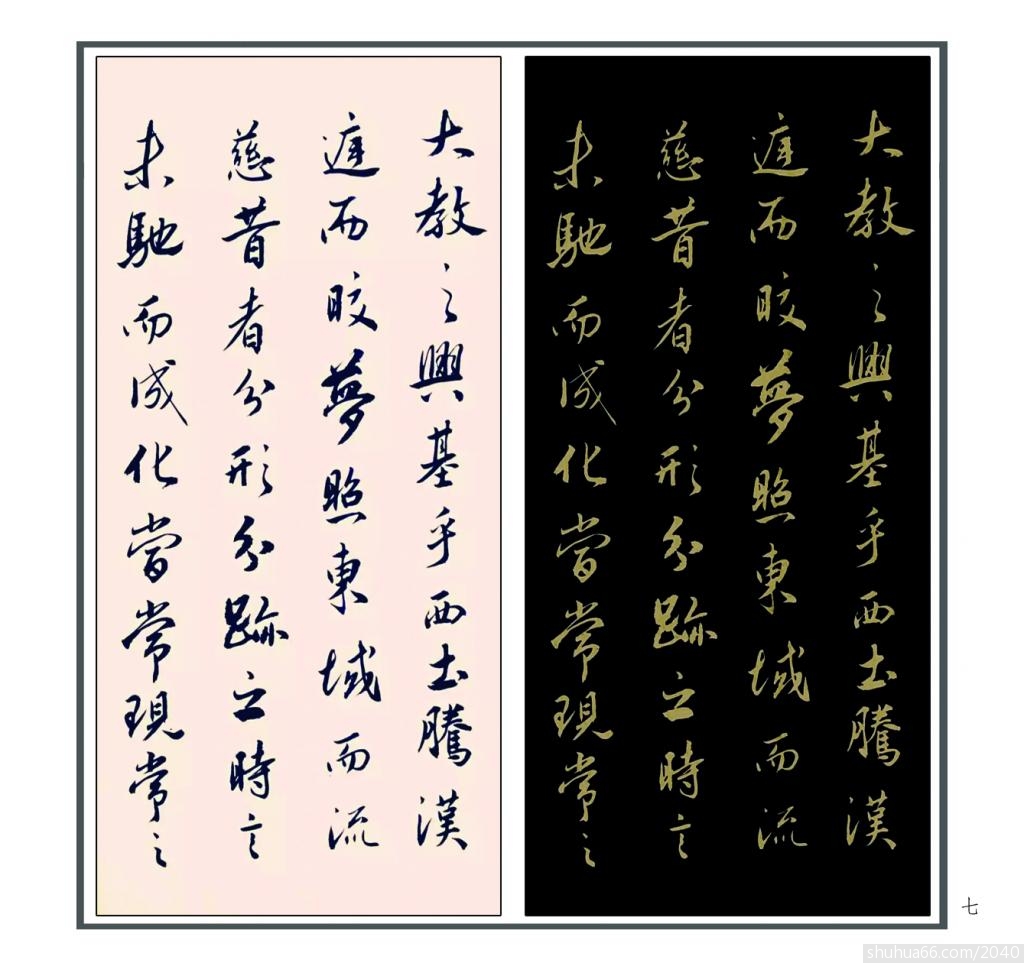 大教之興基乎西土騰漢
庭而皎夢照東域而流
慈昔者分形分跡之時言
未馳而成化當常現常之
大教之興基乎西土騰漢
庭而皎夢照東域而流
慈昔者分形分跡之時言
未馳而成化當常現常之
七
shuhua66.com/2040